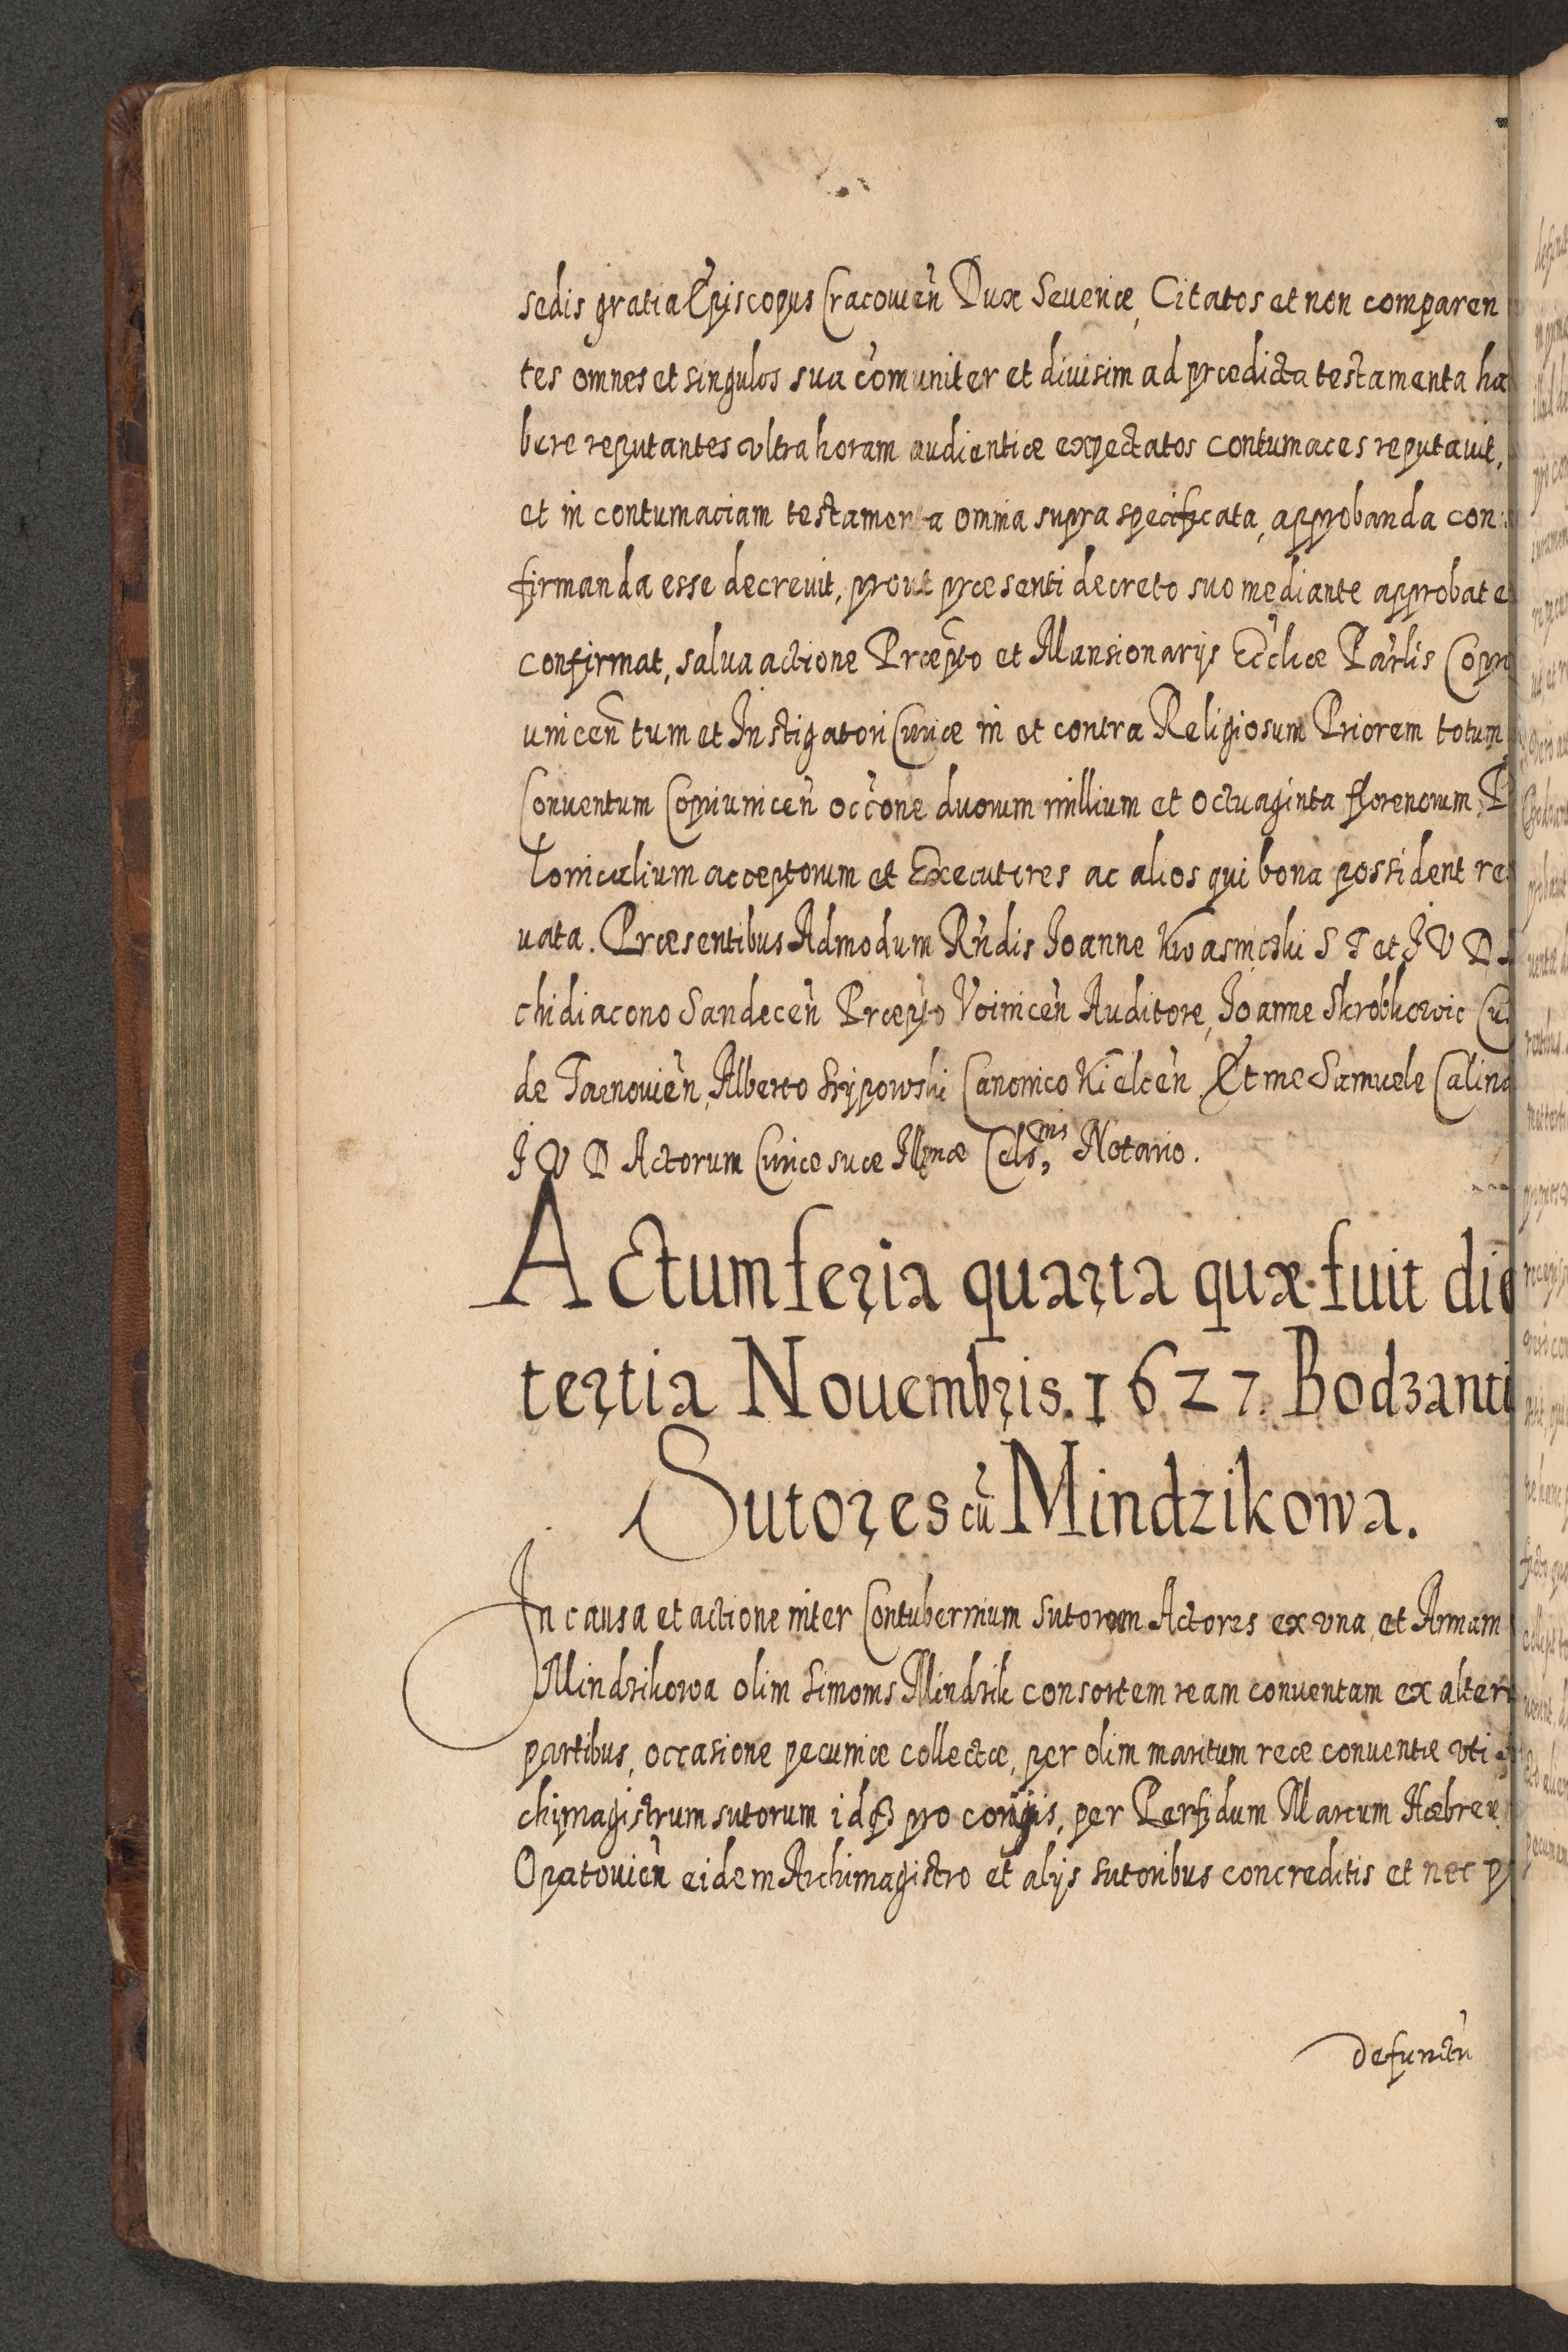 sedis gratia Episcopus Cracouien̄ Dux Seueriæ, Citatos et non comparen
tes omnes et singulos sua com̄uniter et diuisim ad prædicta testamenta ha
bere reputantes vltra horam audientiæ expectatos contumaces reputauit,
et in contumaciam testamenta omnia supra specificata, approbanda con
firmanda esse decreuit, prout præsenti decreto suo mediante approbat e
confirmat, salua actione Præp̄to et Mansionarijs Ecc̄liæ Par̄lis Copri
unicen̄ tum et Instigatori Curiæ in et contra Religiosum Priorem totum
Conuentum Copriunicen̄ occ̄one duorum millium et octuaginta florenorum P
lonicalium acceptorum et Executores ac alios qui bona possident re
uata. Præsentibus Admodum Rn̄dis Joanne Kwasnicski S T et J V D
chidiacono Sandecen̄ Præp̄to Voinicen̄ Auditore, Joanne Skrobkowic Cu
de Tarnouien̄, Alberto Lipowski Canonico Kielcen̄. Et me Samuele Calino
J V D Actorum Curiæ suæ Illmæ Cels.nis Notario.
Actum feria quarta quæ fuit die
tertia Nouembris. 1627. Bodzanti
Sutores cū Mindzikowa.
In causa et actione inter Contubernium Sutorum Actores ex vna, et Annam
Mindzikowa olim Simonis Mindzik consortem ream conuentam ex alter
partibus, occasione pecuniæ collectæ, per olim maritum reæ conuentæ vti
chimagistrum sutorum idq3 pro corijs, per Perfidum Marcum Hæbreu
Opatouien̄ eidem Archimagistro et alijs sutoribus concreditis et nec p
defunctū